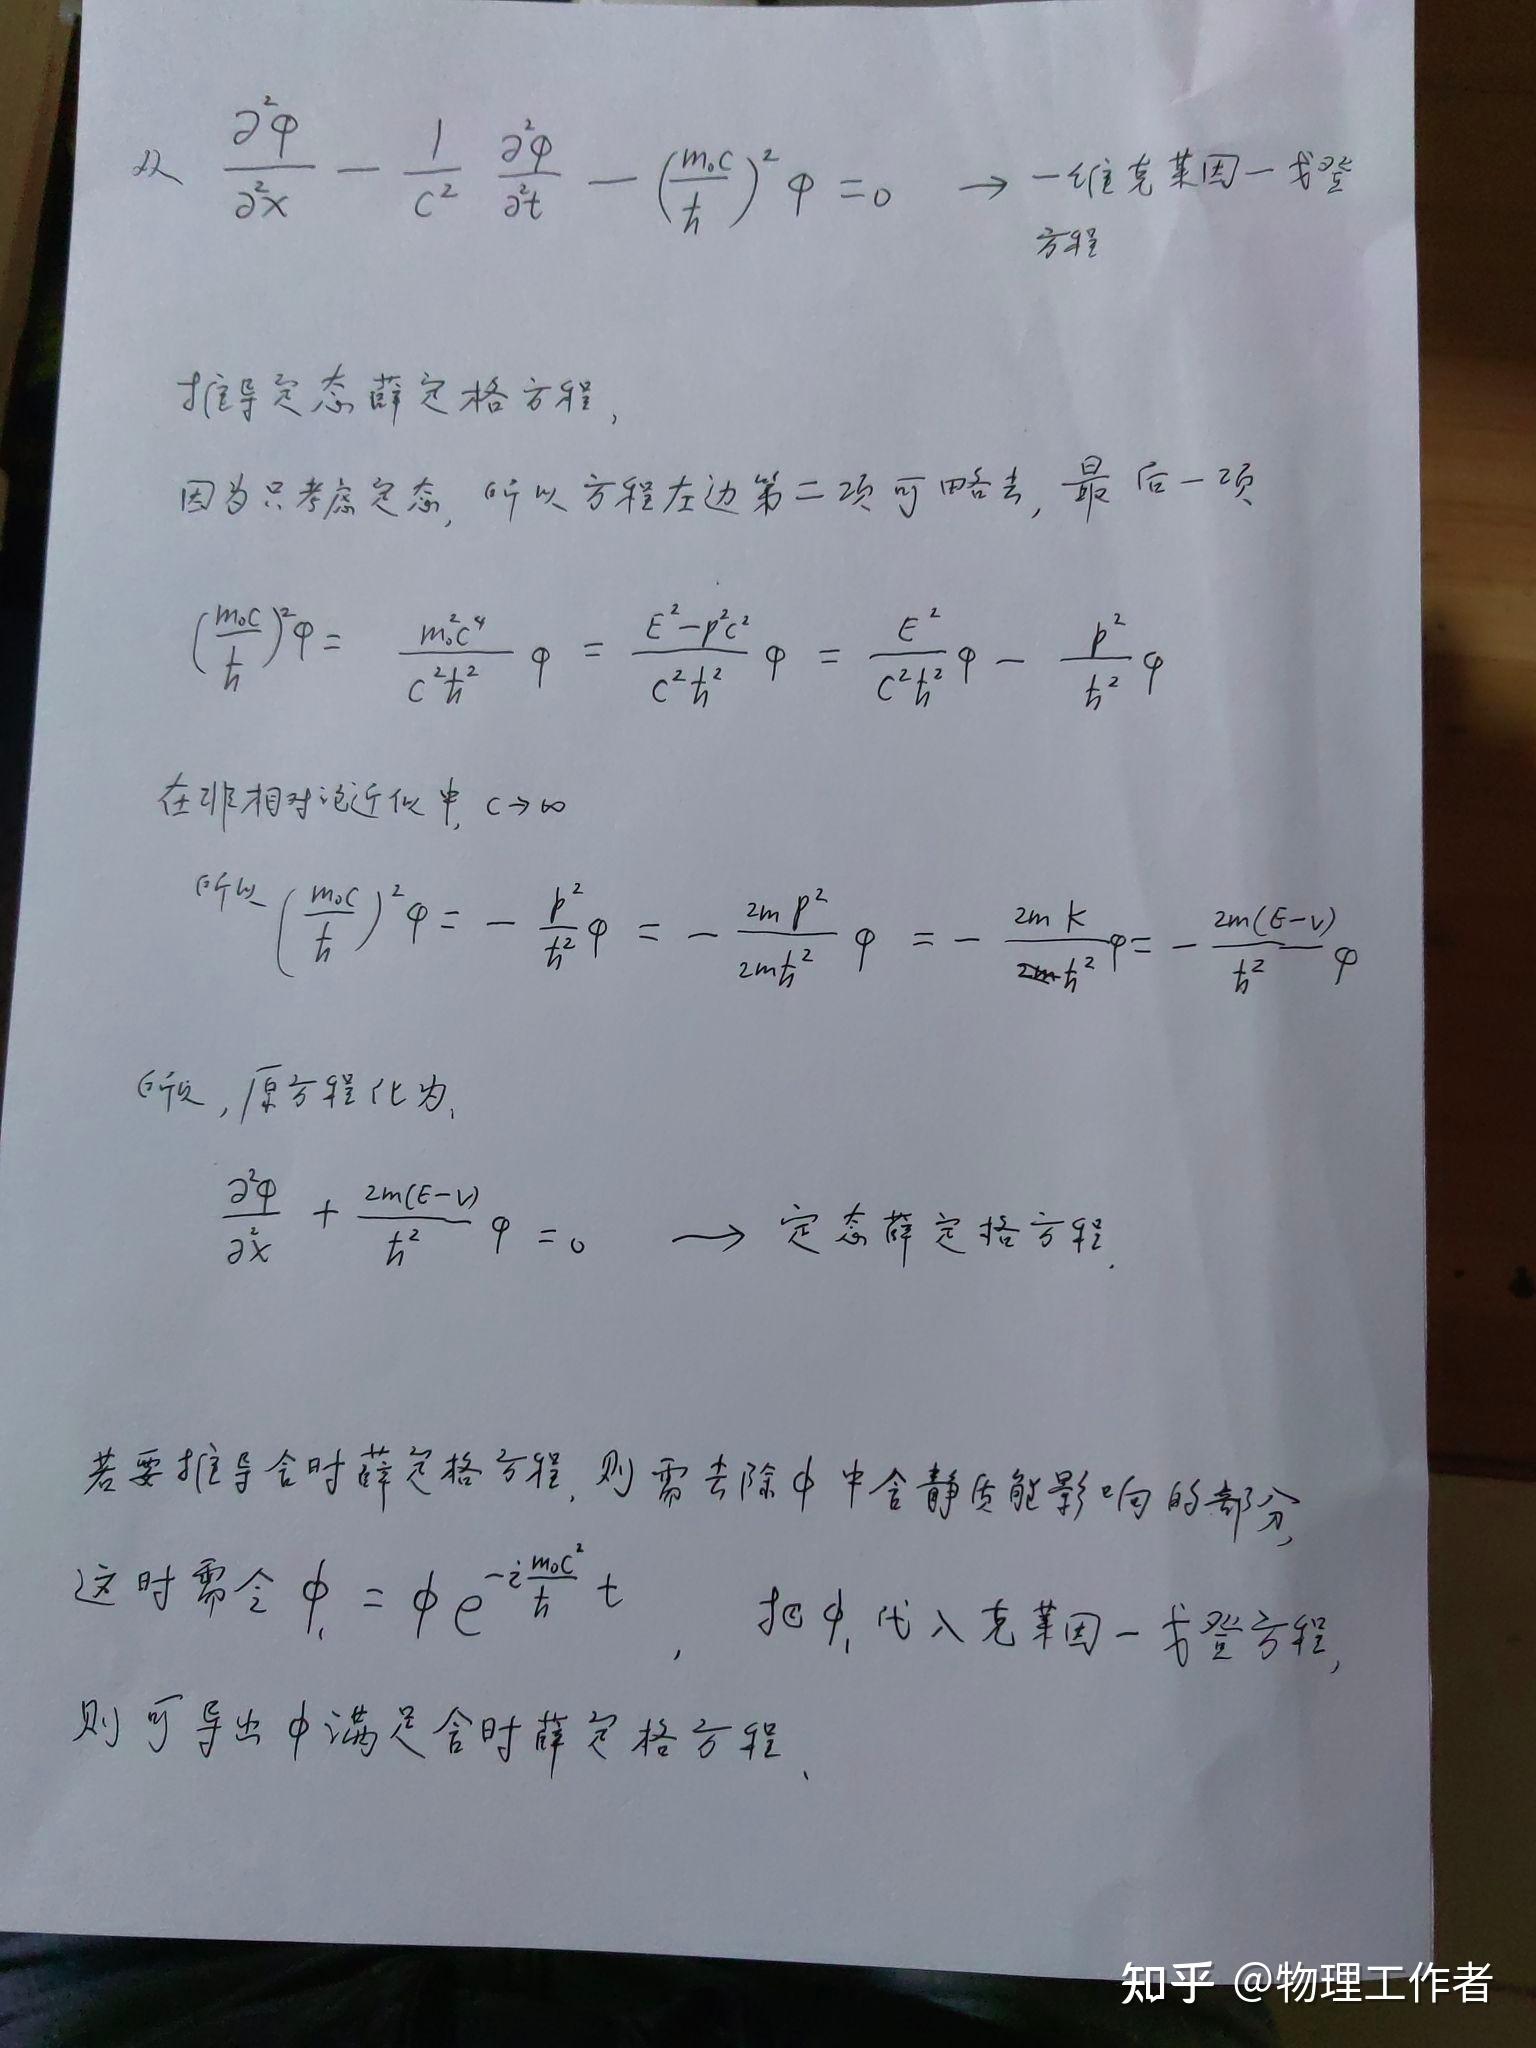 从 ∂²φ/∂²x − 1/c² ∂²φ/∂²t − (m₀c/ħ)² φ = 0 → 一维克莱因-戈登
方程
推导定态薛定格方程,
因为只考虑定态, 所以方程左边第二项可略去, 最后一项
(m₀c/ħ)²φ = m₀²c⁴/c²ħ² φ = E²−p²c²/c²ħ² φ = E²/c²ħ² φ − p²/ħ² φ
在非相对论近似中, c→∞
所以 (m₀c/ħ)²φ = − p²/ħ² φ = − 2mp²/2mħ² φ = − 2mk/ħ² φ = − 2m(E−V)/ħ² φ
所以, 原方程化为,
∂²φ/∂²x + 2m(E−V)/ħ² φ = 0 → 定态薛定格方程.
若要推导含时薛定格方程, 则需去除φ中含静质能影响的部分,
这时需令 φ₁ = φe^(−i m₀c²/ħ t), 把φ₁代入克莱因-戈登方程,
则可导出φ满足含时薛定格方程.
知乎 @物理工作者